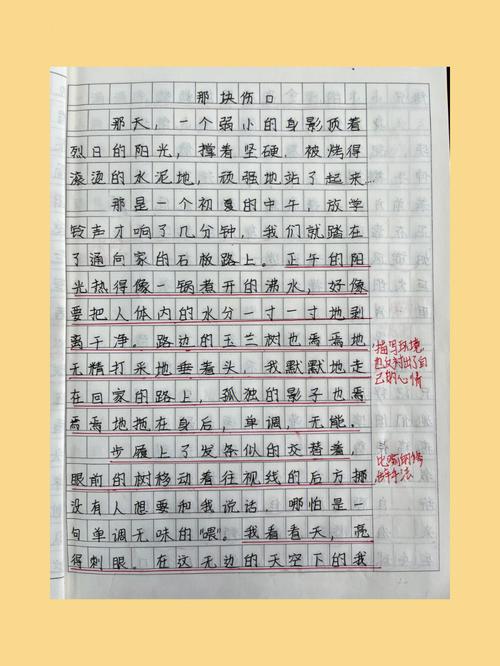 那块伤口
那天，一个弱小的身影顶着
烈日的阳光，撑着坚硬、被烤得
滚烫的水泥地，顽强地站了起来…
那是一个初夏的中午，放学
铃声才响了几分钟，我们就踏在
了通向家的石板路上。正午的阳
光热得像一锅煮开的沸水，好像
要把人体内的水分一寸一寸地剥
离干净。路边的玉兰树也焉焉地
无精打采地垂着头，我默默地走
在回家的路上，孤独的影子也焉
焉焉地拖在身后，单调，无能。
步履上了发条似的交替着，
眼前的树移动着往视线的后方挪
没有人想要和我说话，哪怕是一
句单调无味的“喂”。我看着天，亮
得刺眼。在这无边的天空下的我
描写环境
也反衬出了自
己的心情
比喻的修
辞手法